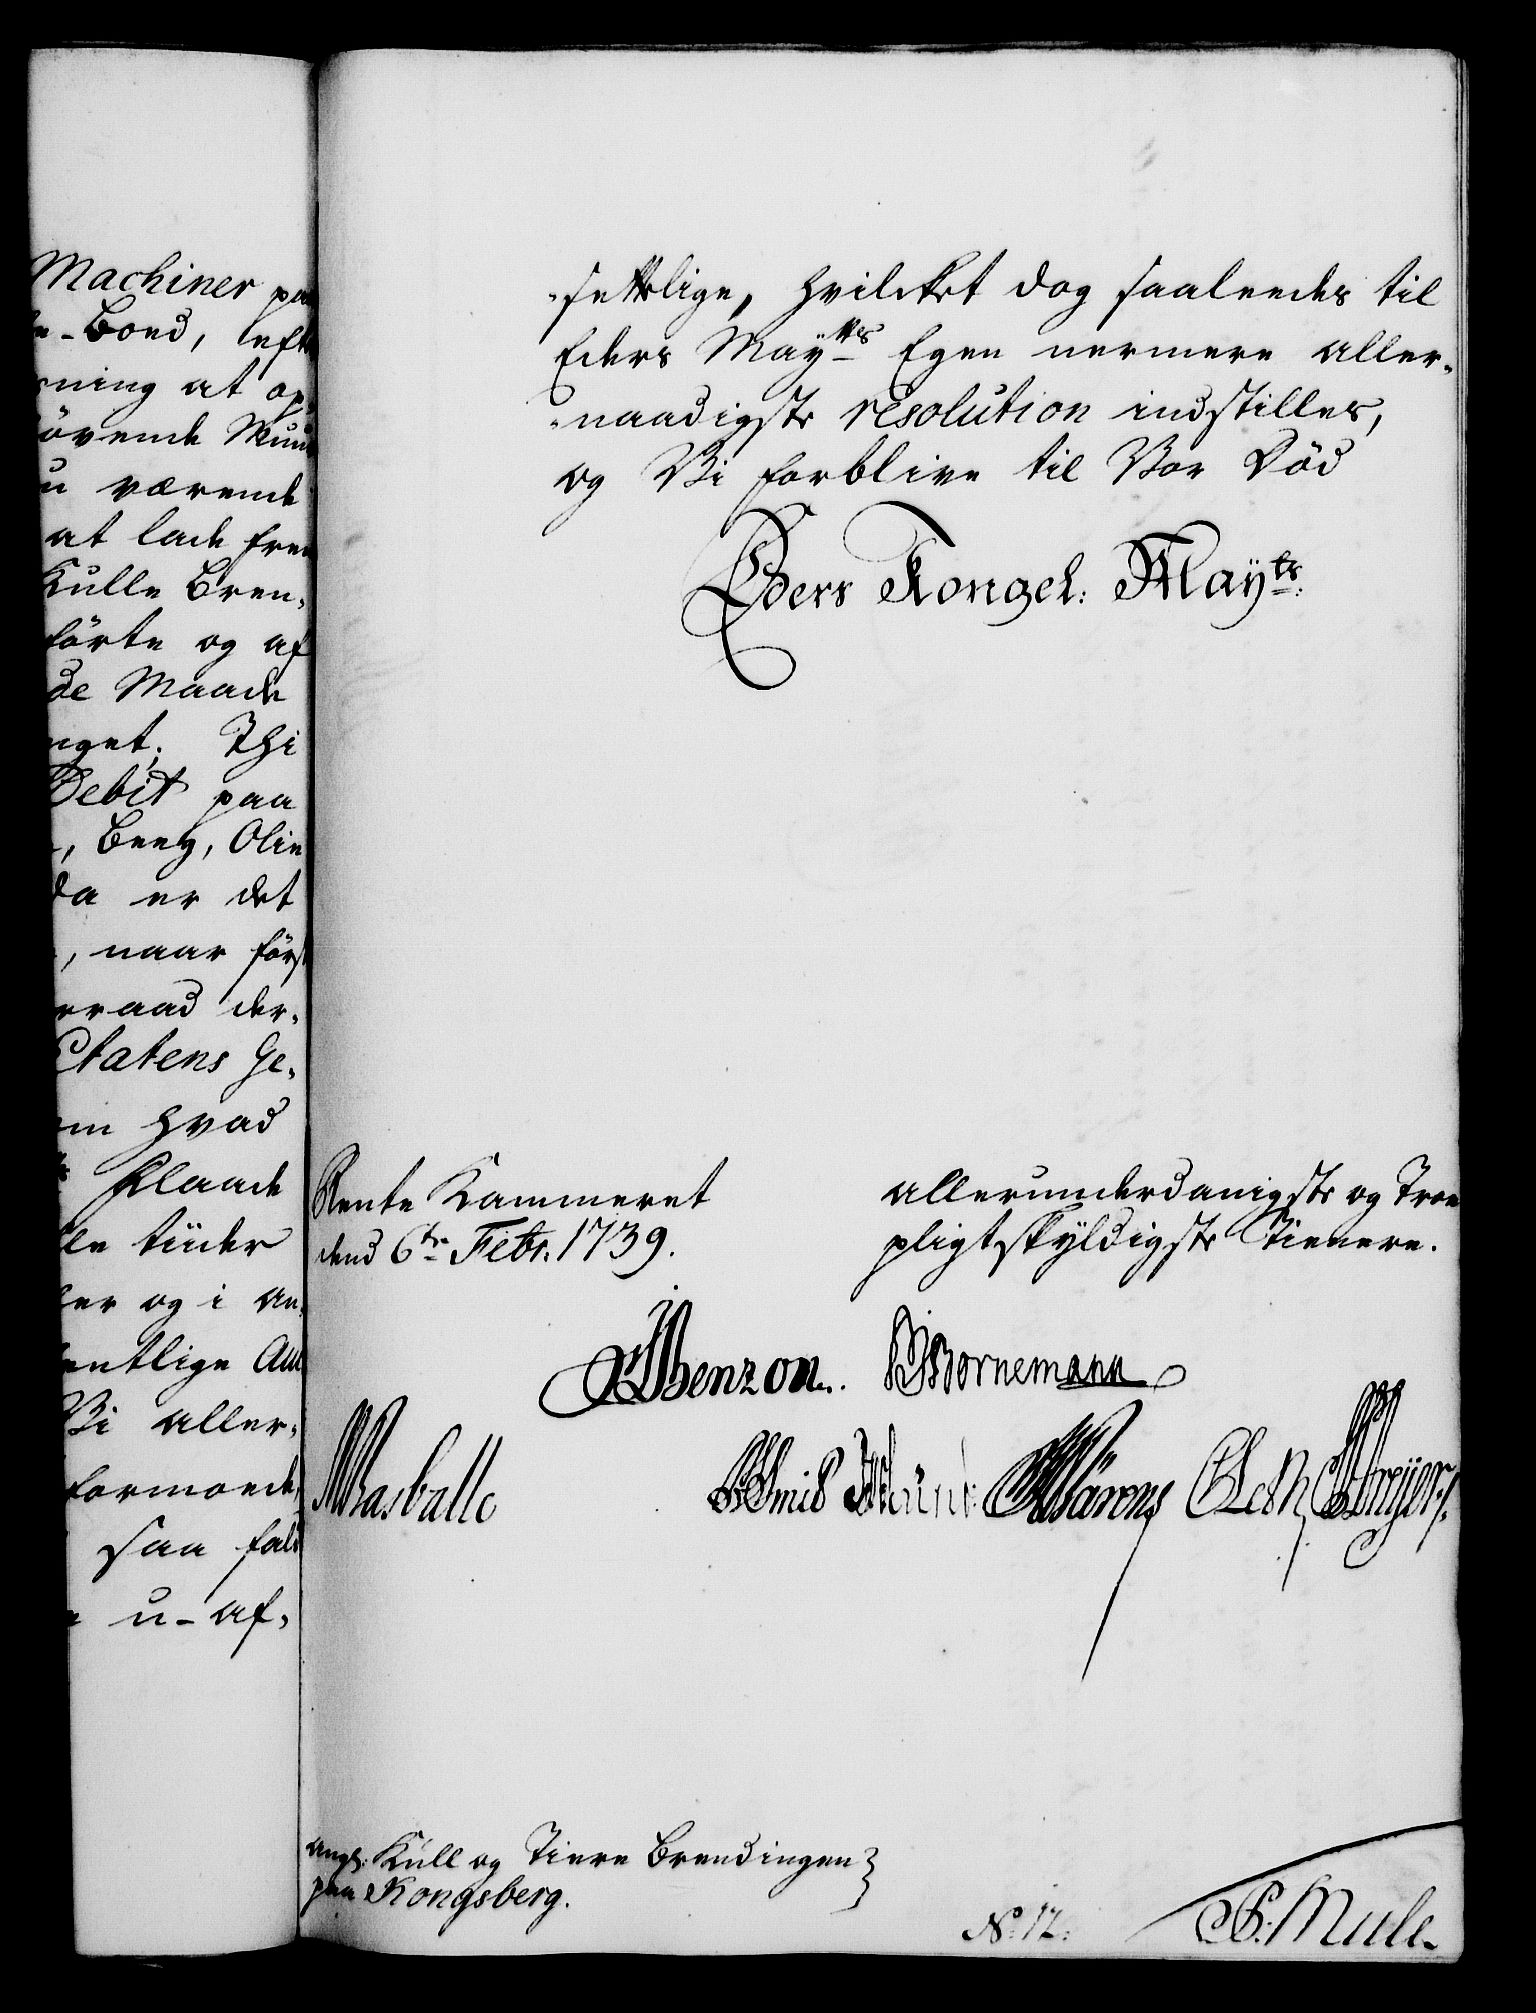 Machiner paa
-Bond, eft
ning at op-
øvende
u værende
at lade frem
Kulle Bren-
førte og af
de Maade
nget; Thi
Debit paa
, Beeg, Olie
da er det
, naar først
rraad der-
Etatens Ge-
om hvad
Flaade
le tiider
ler og i an-
entlige
Vi aller-
formode,
saa fald
u-af-
-settelige, hvilcket dog saaleedes til
Eders Mayts Egen nermere aller-
-naadigste resolution indstilles,
og Vi forblive til Vor Död
Eders Kongel: Mayts:
Rente Kammeret
dend 6te Febr: 1739.
allerunderdanigste og Troe
pligtskyldigste Tienere.
Benzon. Bornemann
Basballe Smid Wärens Dreyer
ang: Kull og Tiere Brendingen
paa Kongsberg.
No: 12:
P: Mule